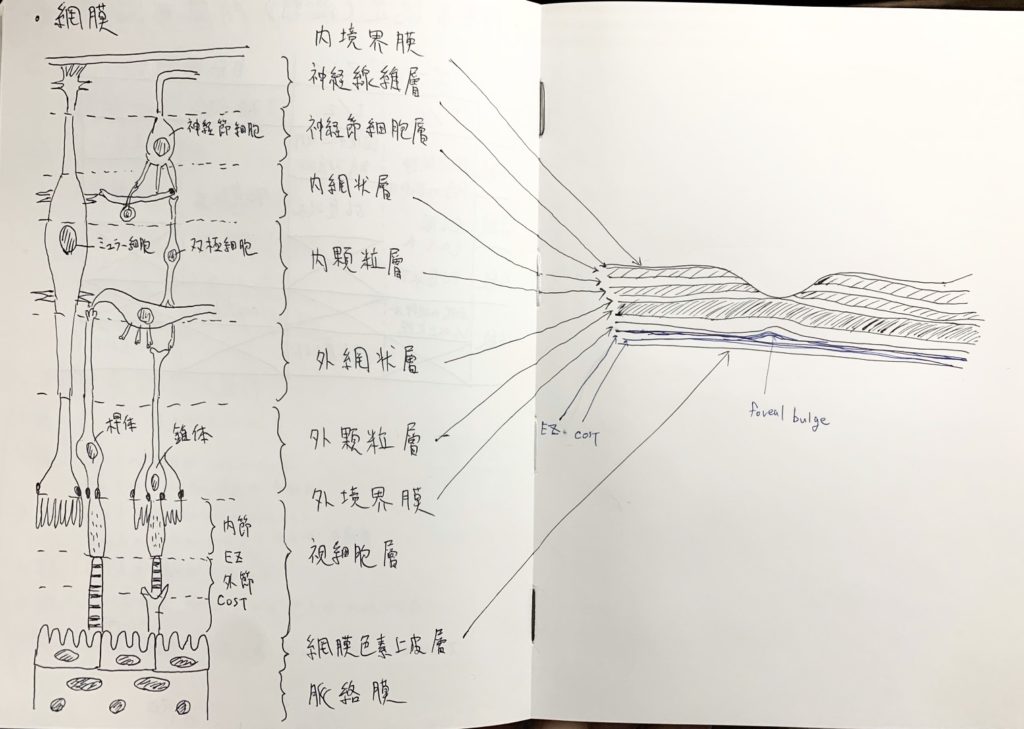 ・網膜
内境界膜
神経線維層
神経節細胞層
内網状層
内顆粒層
外網状層
外顆粒層
外境界膜
視細胞層
網膜色素上皮層
脈絡膜
神経節細胞
ミュラー細胞
双極細胞
桿体
錐体
内節
EZ
外節
COST
EZ
COST
foveal bulge